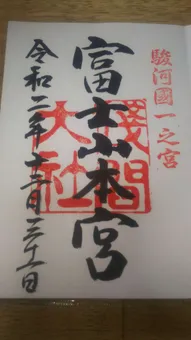 駿河國一之宮
富士山本宮
浅間
大社
令和二年十二月三十一日